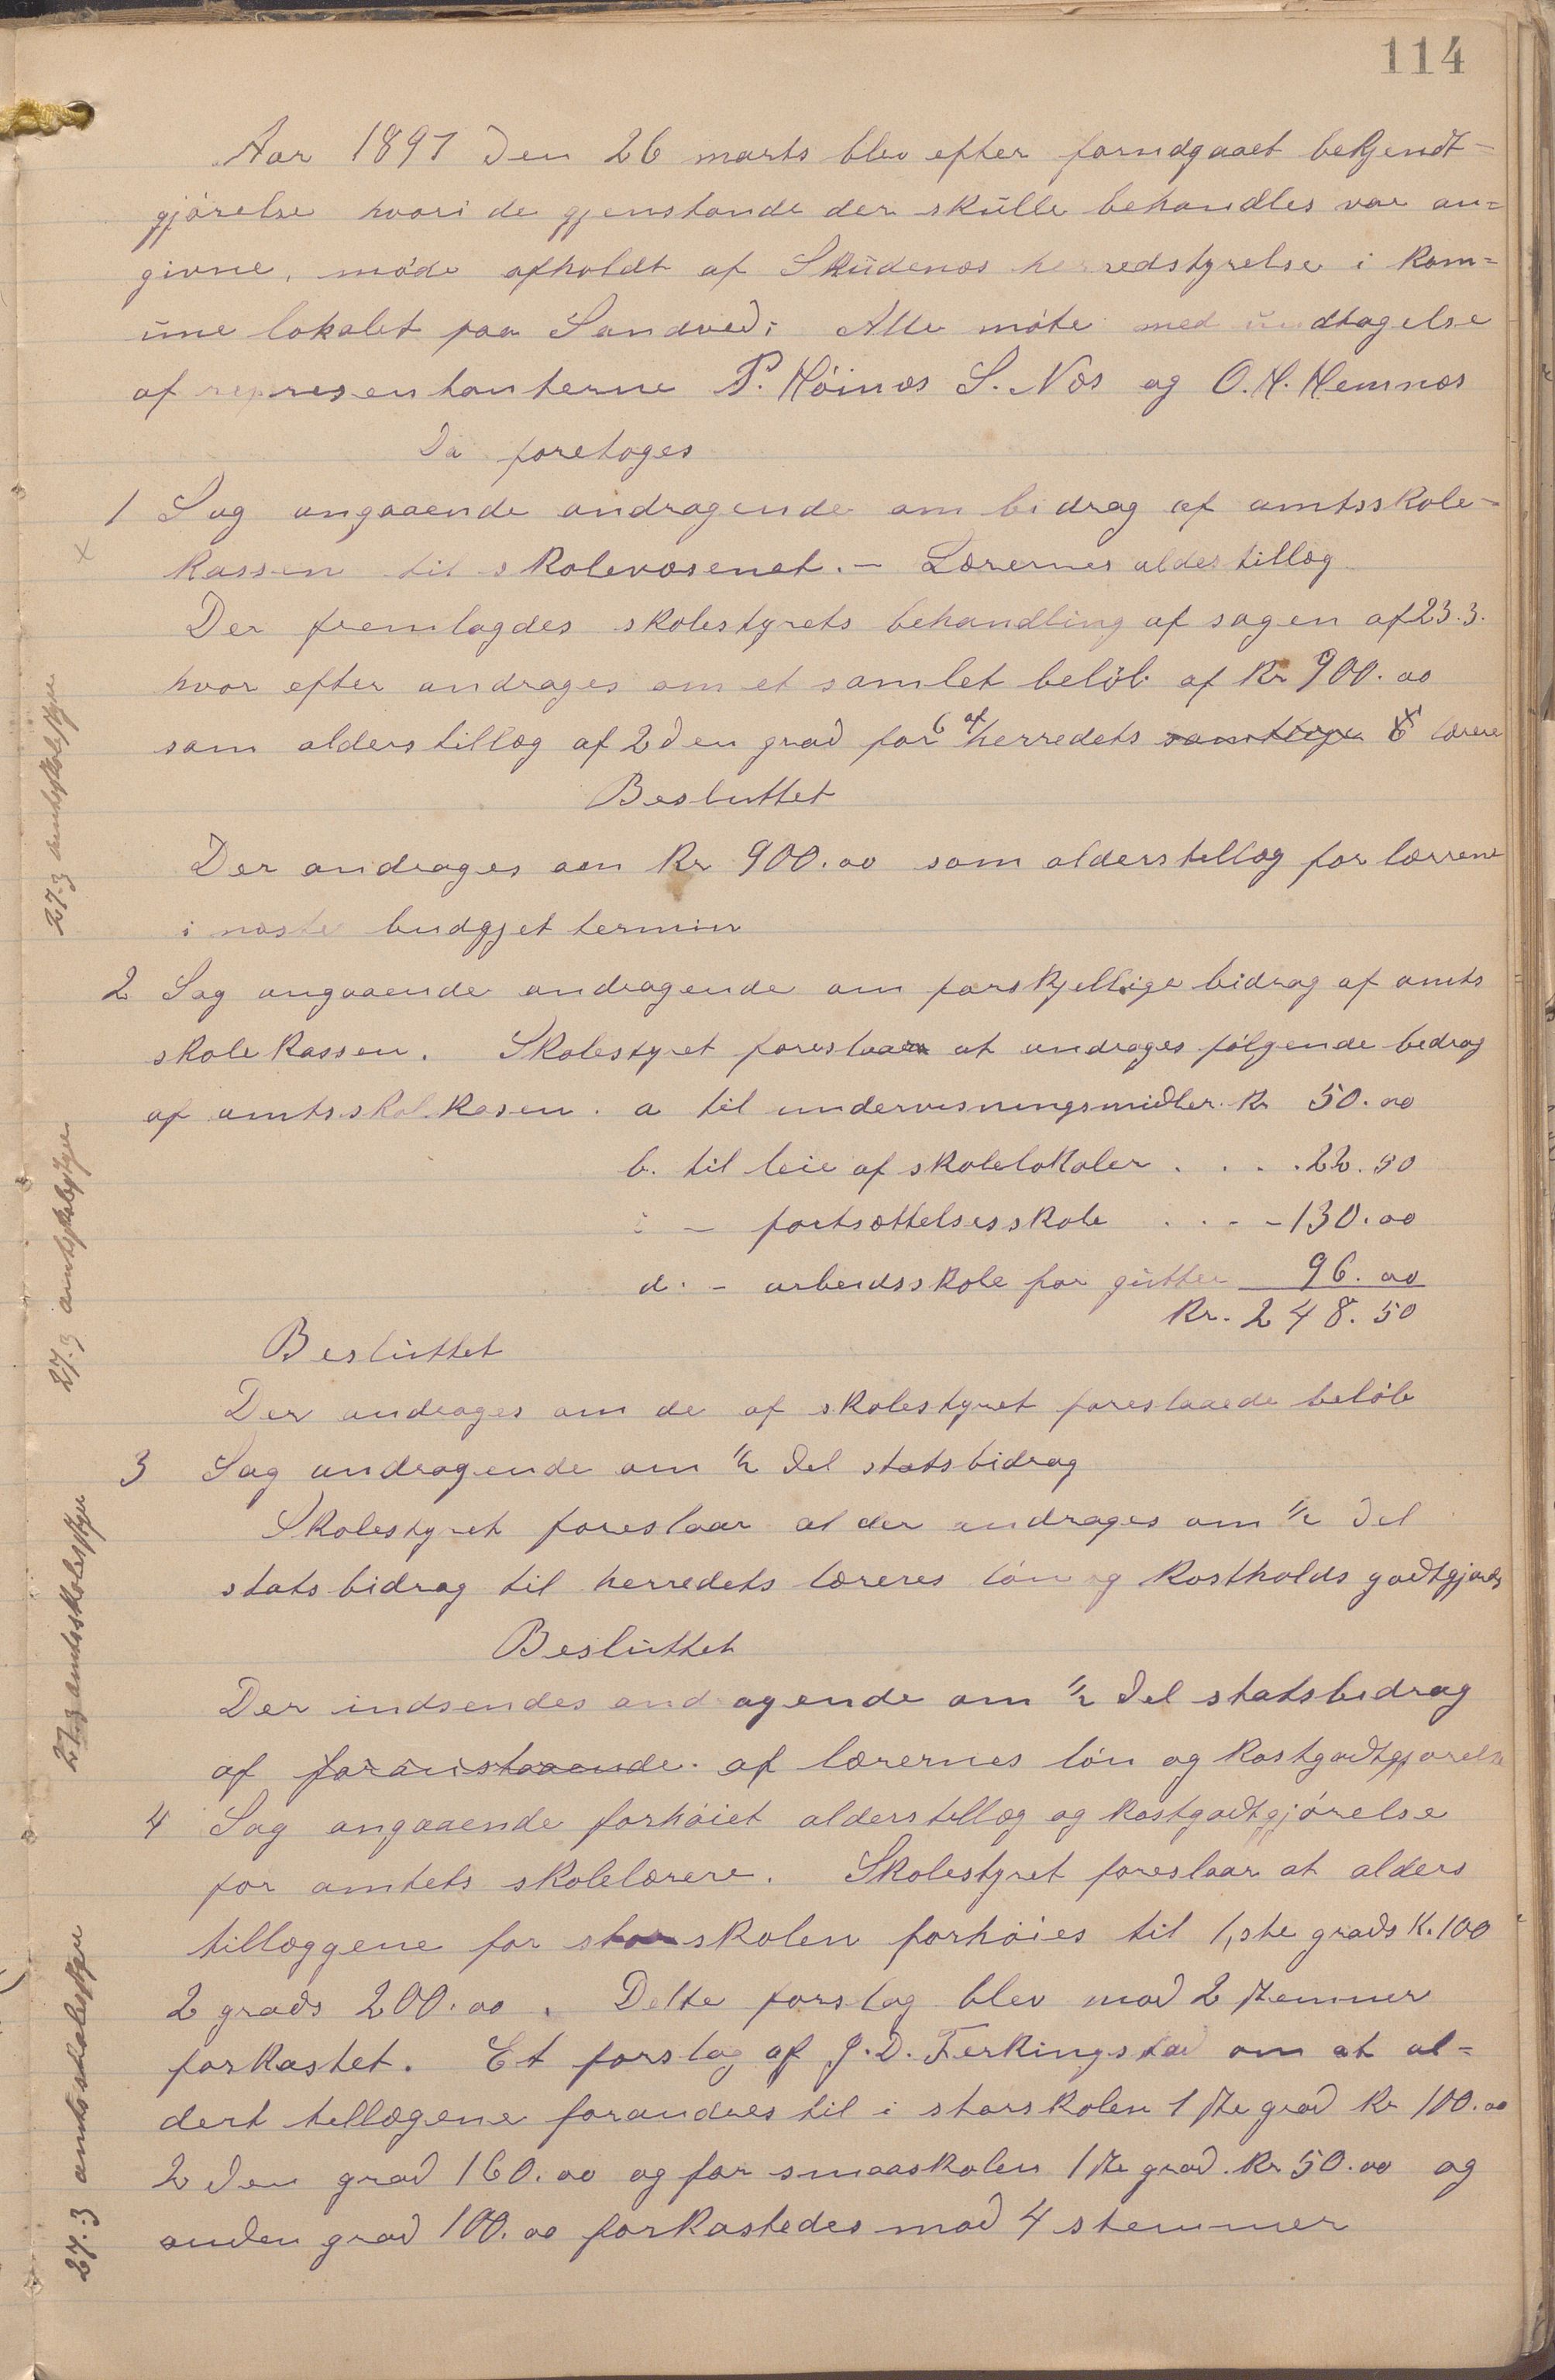 114
Aar 1897 den 26 marts blev efter forudgaaet bekjendt-
gjörelse hvori de gjenstande der skulle behandles var an=
givne, möde afholdt af Skudenæs herredstyrelse i kom=
une lokalet paa Sandved; Alle möte med undtagelse
af representanterne P. Höinæs S. Næs og O. H. Hemnæs
Da foretoges
1 Sag angaaende andragende om bidrag af amtsskole-
kassen til skolevæsenet. - Lærernes aldestillæg
Der fremlagdes skolestyrets behandling af sagen af 23.3.
hvor efter andrages om et samlet belöb af Kr 900.00
som alderstillæg af 2den grad for 6 af herredets samtlige 6 lærere
Besluttet
Der andrages om Kr 900.00 som alderstillæg for lærrene
i næste budgjet termin
27.3 amtsskolestyre
2 Sag angaaende andragende om forskjellige bidrag af amts
skole kassen. Skolestyret foreslaar at andrages fölgende bedrag
af amtsskolkasen. a til undervisningsmidler. Kr 50.00
b. til leie af skolelokaler . . . . 22.50
c - fortsættelsesskole . . - - 130.00
d. - arbeidsskole for gutter 96.00
Kr. 248.50
Besluttet
Der andrages om de af skolestyret foreslaaede belöb
27.3 amtsskolestyre
3 Sag andragende om ½ del statsbidrag
Skolestyret foreslaar at der andrages om ½ del
stats bidrag til herredets læreres lön og kostholds godtgjörels
Besluttet
Der indsendes andragende om ½ del statsbidrag
af foranistaaende. af lærernes lön og kostgodtgjorelse
27.3 amtsskolestyre
4 Sag angaaende forhöiet alderstillæg og kostgodtgjörelse
for amtets skolelærere. Skolestyret foreslaar at alders
tillæggene for storskolen forhöies til 1,ste grads K. 100
2 grads 200.00. Dette forslag blev mod 2 stemmer
forkastet. Et forslag af J. D. Ferkingstad om at al=
dert tellægene forandres til i storskolen 1ste grad Kr 100.00
2 den grad 160.00 og for smaaskolen 1ste grad. Kr 50.00 og
anden grad 100.00 forkastedes mod 4 stemmer
27.3 amtsskolestyre